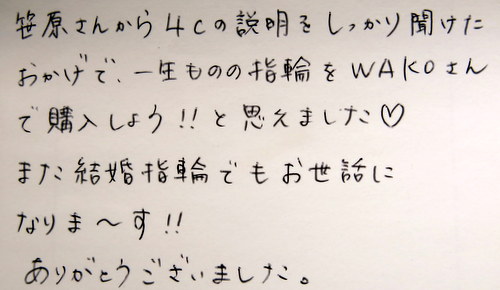 笹原さんから4cの説明をしっかり聞けた
おかげで、一生ものの指輪をWAKOさん
で購入しよう!!と思えました♡
また結婚指輪でもお世話に
なりま〜す!!
ありがとうございました。